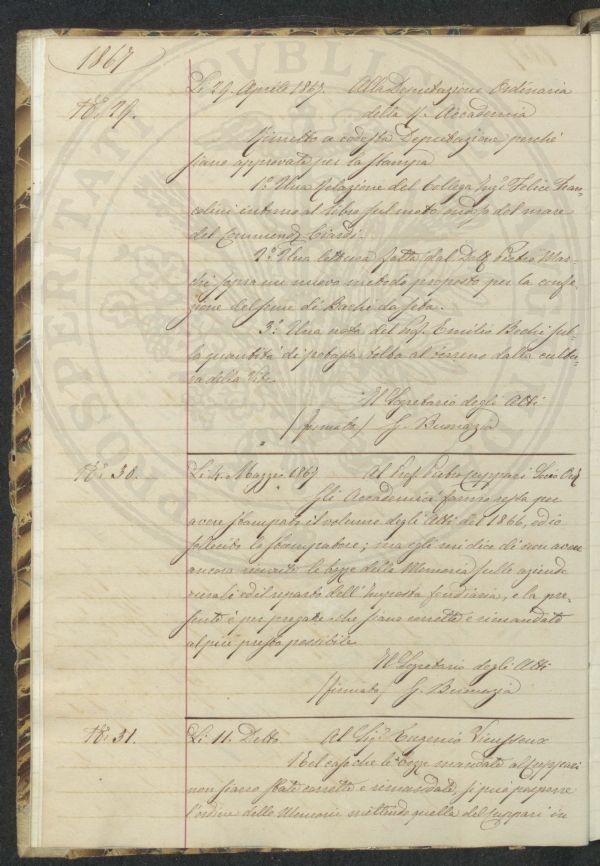 1867
PROSPERITATI PUBLICAE
Li 29. Aprile 1867. Alla Deputazione Ordinaria
N.° 29. della R. Accademia
Rimetto a codesta Deputazione perchè
siano approvate per la stampa
1.° Una Relazione del Collega Ing.r Felice Fran-
colini intorno al libro sul moto ond.° del mare
del Commend.r Cialdi.
2.° Una lettura fatta dal Dott. Pietro Mar-
chi sopra un nuovo metodo proposto per la confe-
zione del seme di Bachi da seta.
3.° Una nota del Prof. Emilio Bechi sul-
la quantità di potassa tolta al terreno dalla cultu-
ra della Vite.
Il Segretario degli Atti
/firmato/ G. Buonazia
N.° 30. Li 4. Maggio 1867 Al Prof. Pietro Cuppari Socio Ord.
Gli Accademici fanno ressa per
avere stampato il volume degli Atti del 1866, ed io
sollecito lo stampatore; ma egli mi dice di non avere
ancora ricevuto le bozze della Memoria sulle aziende
rurali ed il reparto dell'Imposta fondiaria, e la pre-
sente è per pregarla che siano corrette e rimandate
al più presto possibile.
Il Segretario degli Atti
/firmato/ G. Buonazia
N.° 31. Li 11. Detto Al Sig.r Eugenio Vieusseux
Nel caso che le bozze mandate al Cuppari
non siano state corrette e rimandate, si può posporre
l'ordine delle Memorie mettendo quella del Cuppari in